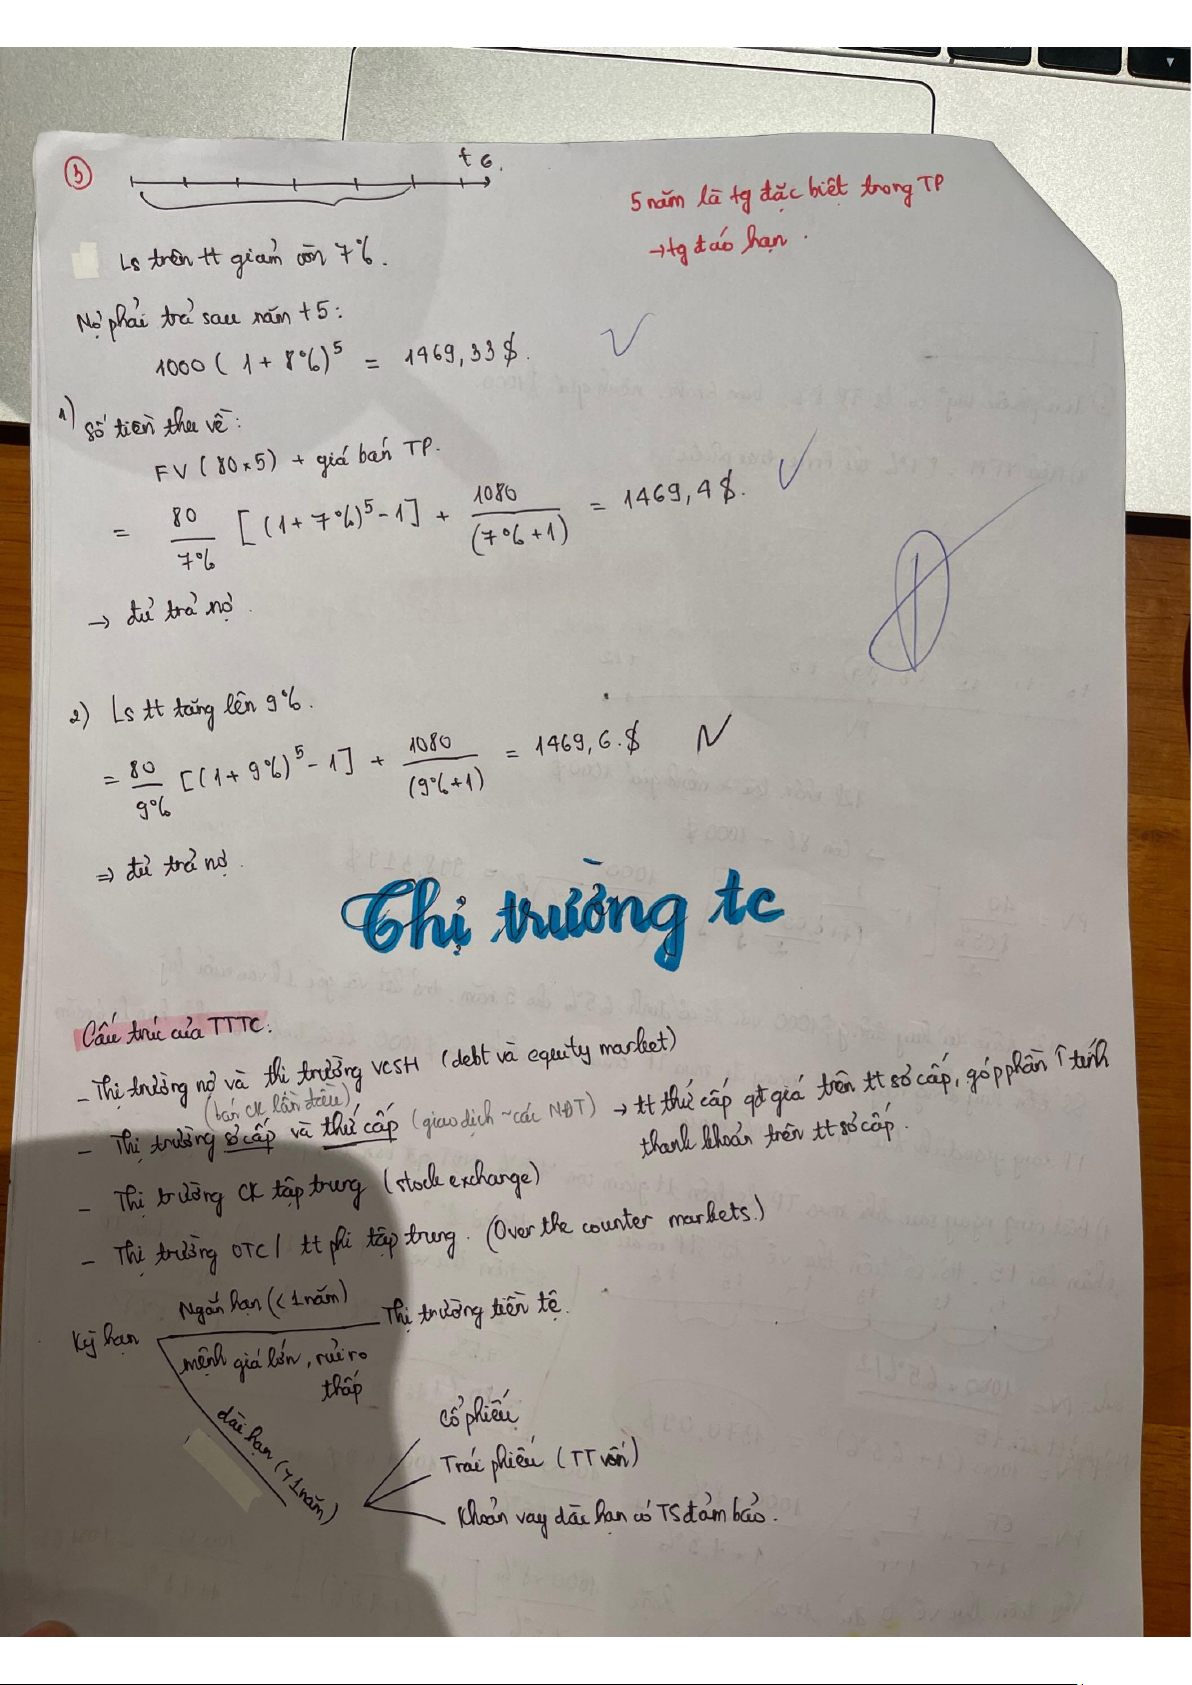 b
t 6
5 năm là tg đặc biệt trong TP
→ tg đáo hạn.
Ls trên tt giảm còn 7%.
Nợ phải trả sau năm t5:
1000 ( 1 + 8%)⁵ = 1469,33$.
1) Số tiền thu về:
FV (80×5) + giá bán TP.
= 80/7% [(1+7%)⁵-1] + 1080/(7%+1) = 1469,4$.
→ đủ trả nợ.
2) Ls tt tăng lên 9%.
= 80/9% [(1+9%)⁵-1] + 1080/(9%+1) = 1469,6.$
⇒ đủ trả nợ.
Thị trường tc
Cấu trúc của TTTC:
- Thị trường nợ và thị trường VCSH (debt và equity market)
(bán CK lần đầu)
- Thị trường sơ cấp và thứ cấp (giao dịch ~ các NĐT) → tt thứ cấp qđ giá trên tt sơ cấp, góp phần ↑ tính
thanh khoản trên tt sơ cấp.
- Thị trường CK tập trung (stock exchange)
- Thị trường OTC / tt phi tập trung. (Over the counter markets.)
Kỳ hạn
Ngắn hạn (< 1 năm) Thị trường tiền tệ.
mệnh giá lớn, rủi ro
thấp
dài hạn (> 1 năm)
Cổ phiếu
Trái phiếu (TT vốn)
Khoản vay dài hạn có TS đảm bảo.